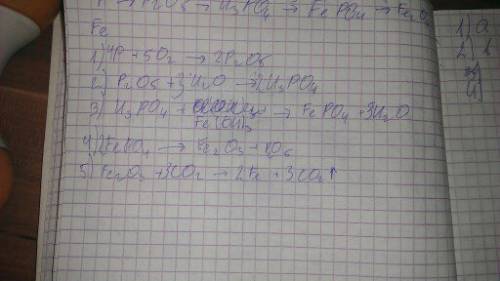 P → P₂O₅ → H₃PO₄ → FePO₄ → Fe₂O₃
Fe
1) 4P + 5O₂ → 2P₂O₅
2) P₂O₅ + 3H₂O → 2H₃PO₄
3) H₃PO₄ + Fe(OH)₃ → FePO₄ + 3H₂O
4) 2FePO₄ → Fe₂O₃ +
5) Fe₂O₃ + 3CO₂ → 2Fe + 3CO₂↑
1) a
2)
3)
4)